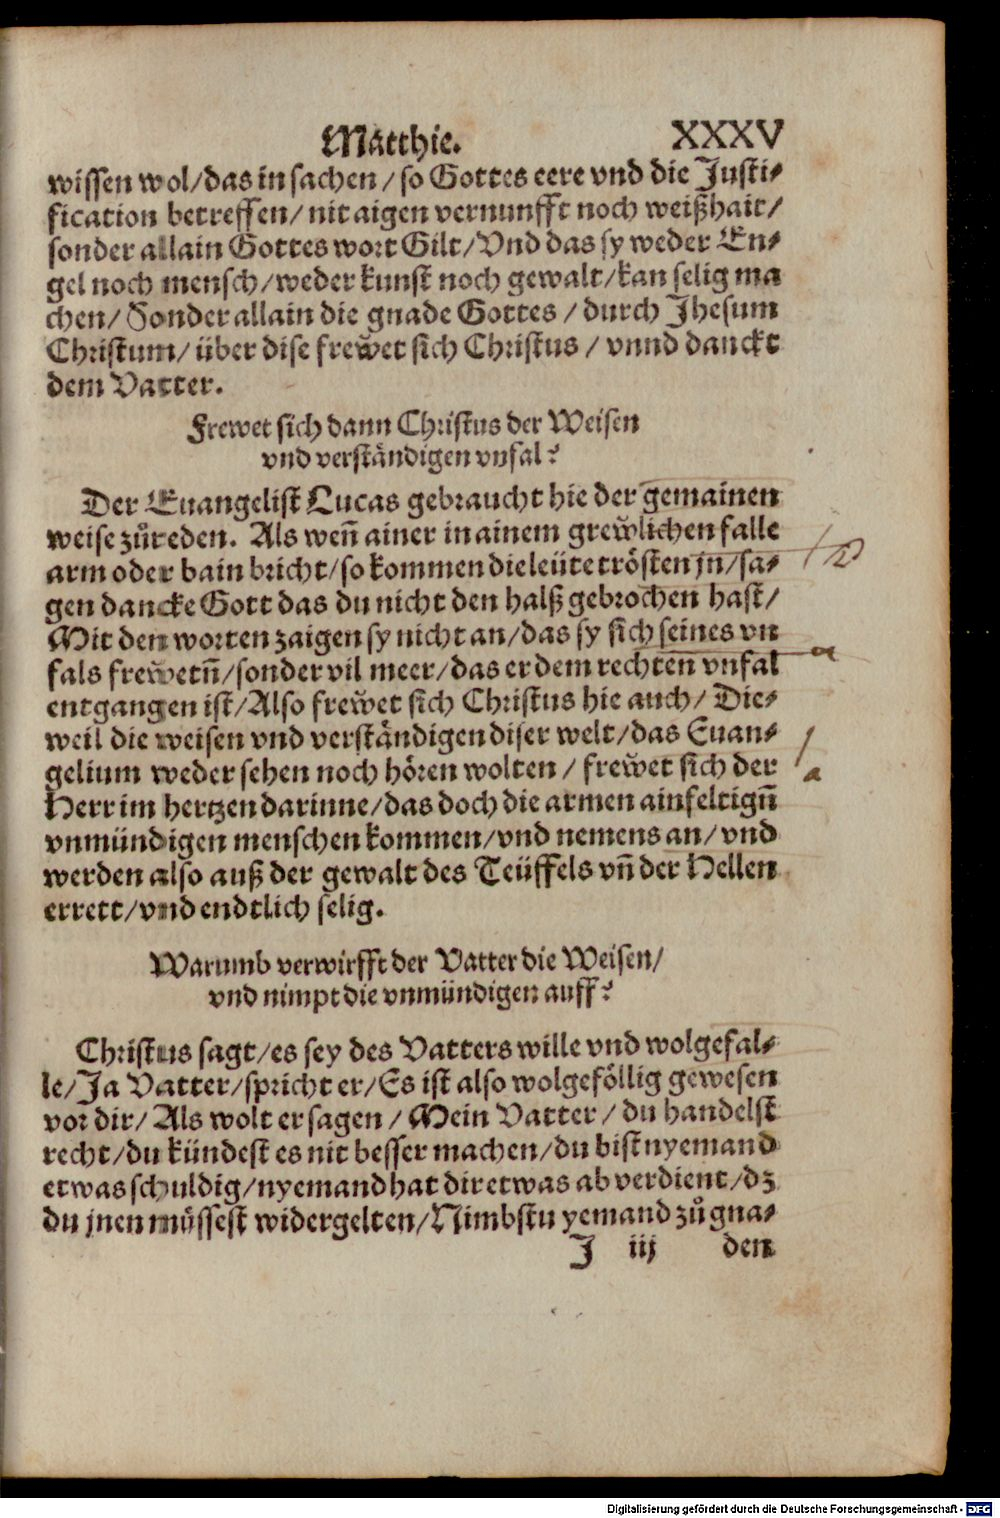 Matthie. XXXV
wissen wol/das in sachen/so Gottes eere vnd die Justi⸗
fication betreffen/nit aigen vernunfft noch weißhait/
sonder allain Gottes wort Gilt/Vnd das sy weder En⸗
gel noch mensch/weder kunst noch gewalt/kan selig ma
chen/Sonder allain die gnade Gottes/durch Jhesum
Christum/über dise frewet sich Christus/vnnd danckt
dem Vatter.
Frewet sich dann Christus der Weisen
vnd verständigen vnfal?
Der Euangelist Lucas gebraucht hie der gemainen
weise zůreden. Als wen̄ ainer in ainem grewlichen falle
arm oder bain bricht/so kommen die leüte trösten jn/sa⸗
gen dancke Gott das du nicht den halß gebrochen hast/
Mit den worten zaigen sy nicht an/das sy sich seines vn
fals frewetn̄/sonder vil meer/das er dem rechten̄ vnfal
entgangen ist/Also frewet sich Christus hie auch/Die⸗
weil die weisen vnd verständigen diser welt/das Euan⸗
gelium weder sehen noch hören wolten/frewet sich der
Herr im hertzen darinne/das doch die armen ainfeltign̄
vnmündigen menschen kommen/vnd nemens an/vnd
werden also auß der gewalt des Teüffels vn̄ der Hellen
errett/vnd endtlich selig.
Warumb verwirfft der Vatter die Weisen/
vnd nimpt die vnmündigen auff?
Christus sagt/es sey des Vatters wille vnd wolgefal⸗
le/Ja Vatter/spricht er/Es ist also wolgeföllig gewesen
vor dir/Als wolt er sagen/Mein Vatter/du handelst
recht/du kündest es nit besser machen/du bist nyemand
etwas schuldig/nyemand hat dir etwas abverdient/dz
du jnen müssest widergelten/Nimbstu yemand zů gna⸗
J iij den
Digitalisierung gefördert durch die Deutsche Forschungsgemeinschaft - DFG